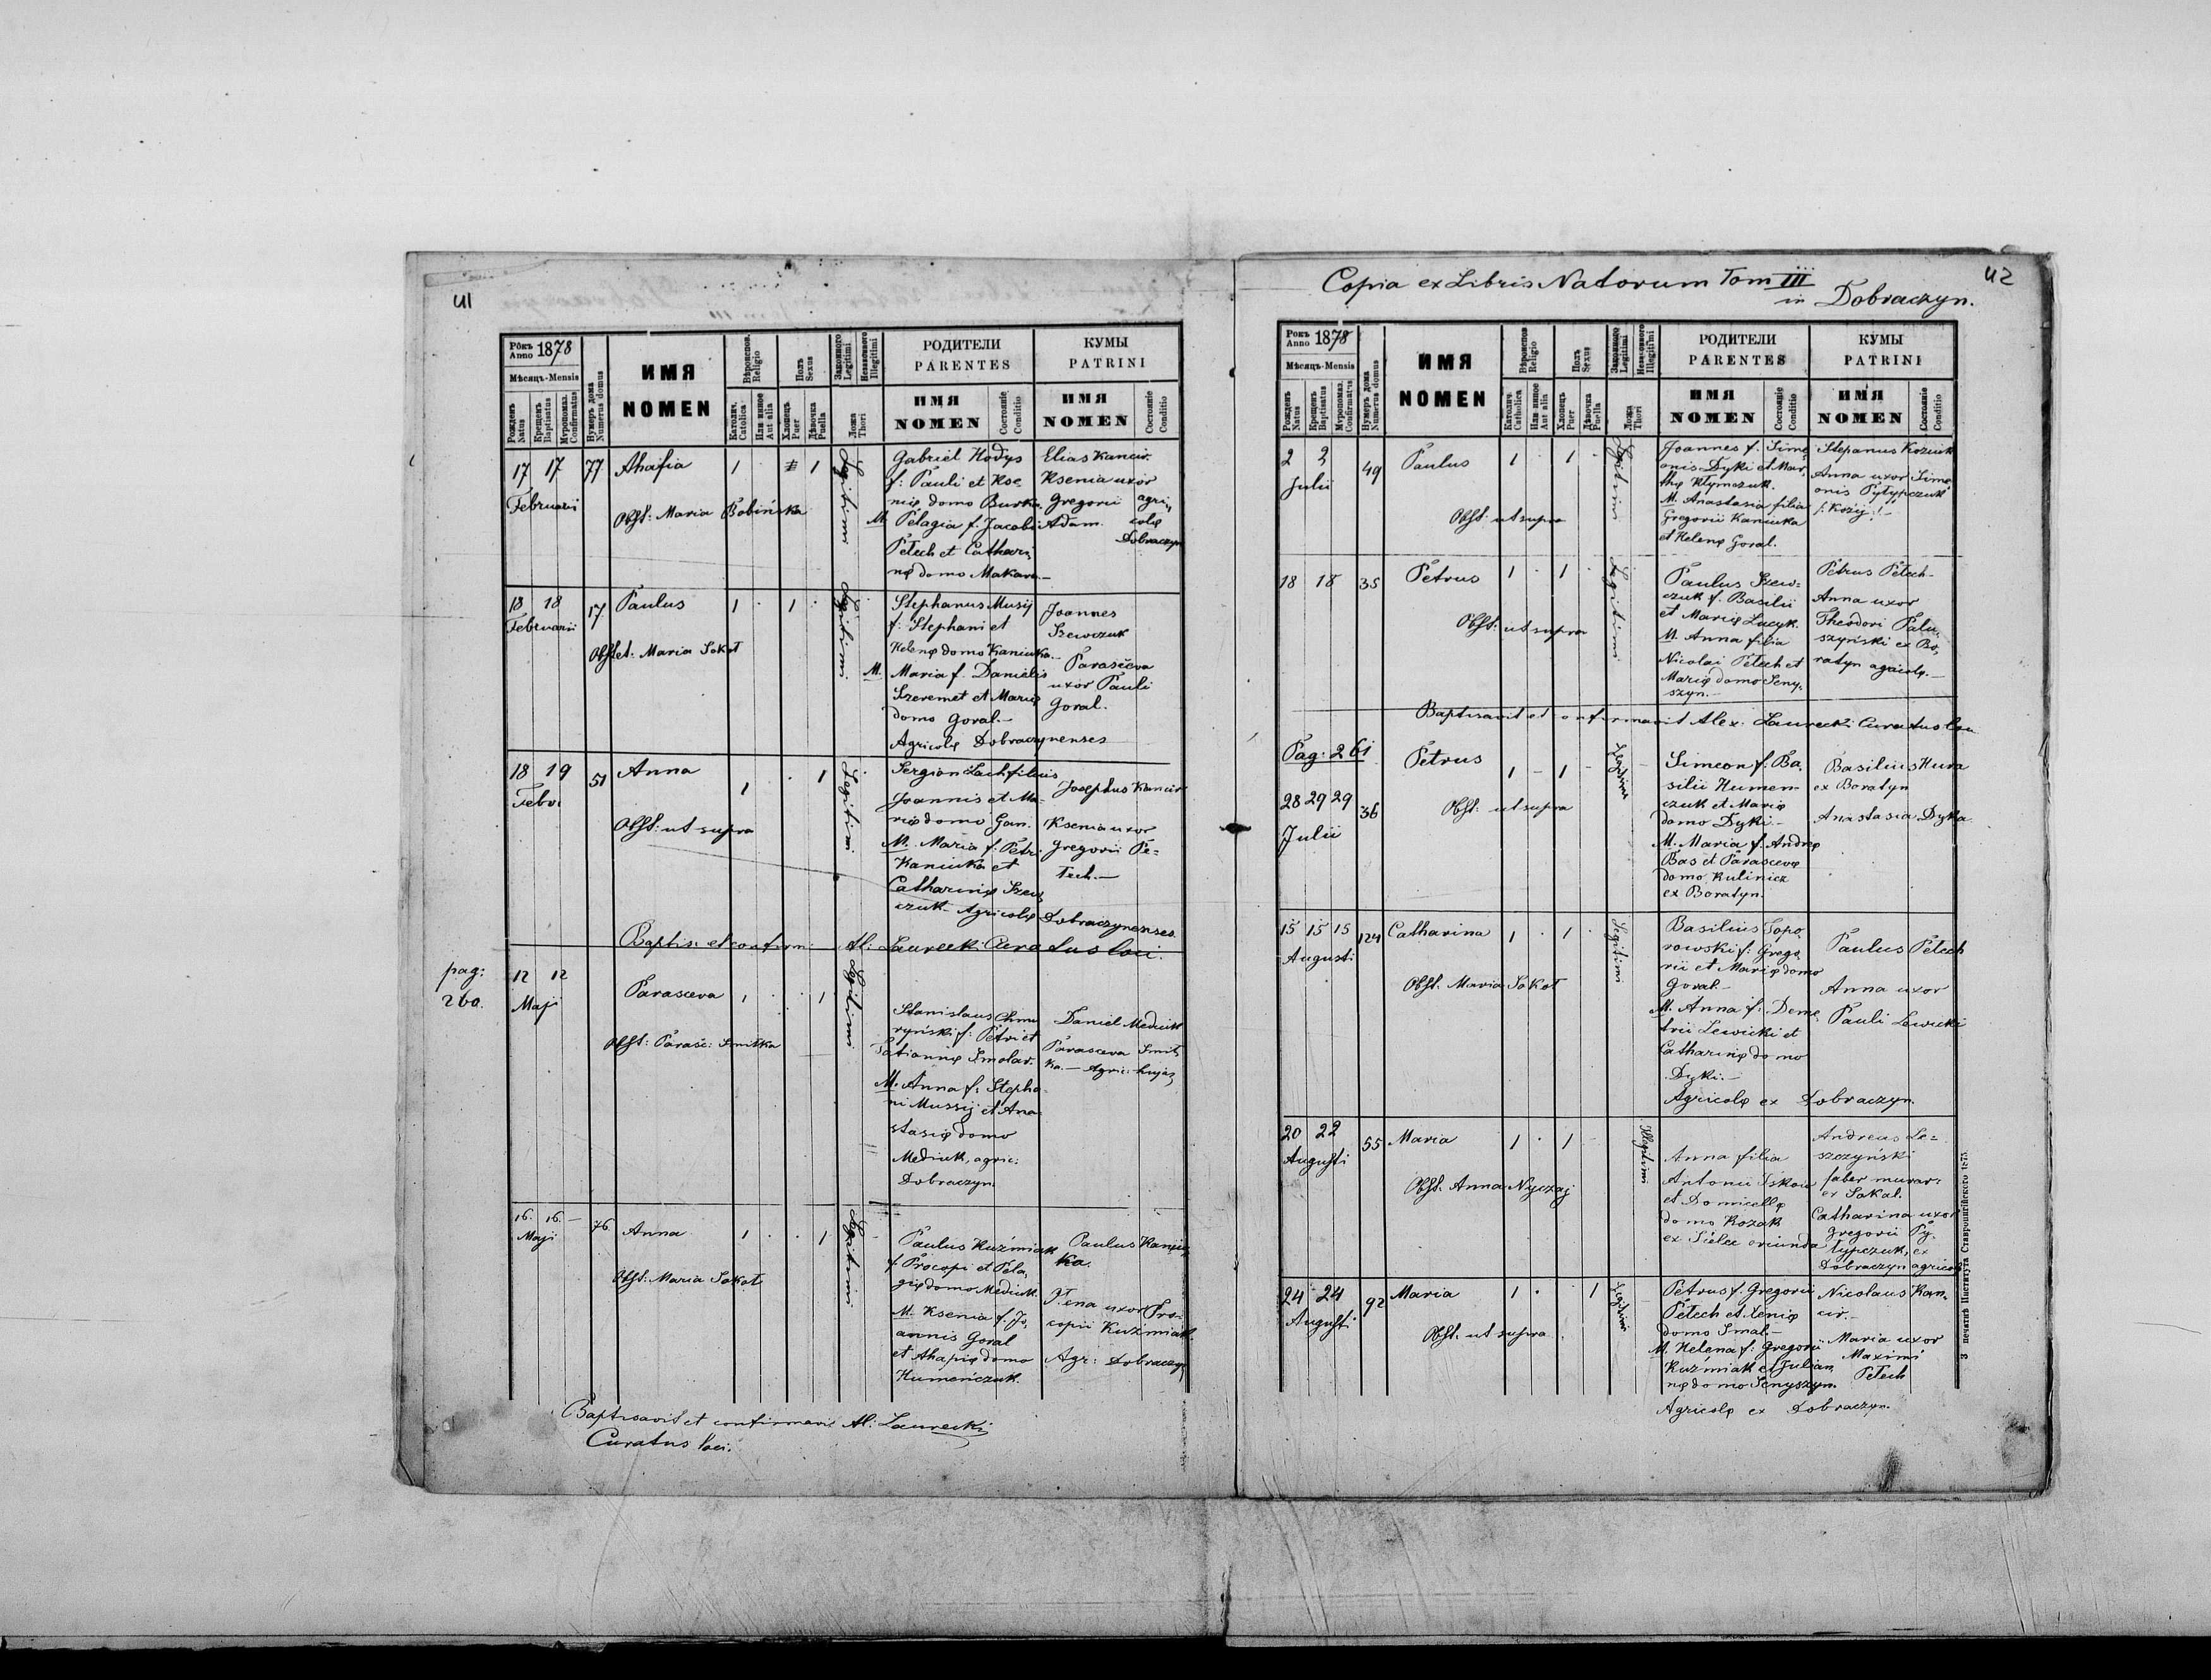 41
Рôкъ Anno 1878
Мѣсяцъ-Mensis
Рожденъ Natus
Крещенъ Baptisatus
Мѵропомаз. Confirmatus
Нумеръ дома Numerus domus
ИМЯ
NOMEN
Вѣроиспов. Religio
Католич. Catolica
Или инное Aut alia
Полъ Sexus
Хлопецъ Puer
Дѣвочка Puella
Законного Legitimi
Незаконного Illegitimi
Ложа Thori
РОДИТЕЛИ
PARENTES
ИМЯ
NOMEN
Состояніе Conditio
КУМЫ
PATRINI
ИМЯ
NOMEN
Состояніе Conditio
17 17 77 Ahafia 1 . 1 Legitimi
Februarii
Obst: Maria Bobińska
Gabriel Hodys
f: Pauli et Kse
nię domo Burka
M. Pelagia f. Jacobi
Petech et Cathari
nę domo Makara
Elias Kancir
Ksenia uxor
Gregorii agri
Adam. colę
Dobraczyn
18 18 17. Paulus 1 . 1 . Legitimi
Februarii
Obstet. Maria Sokot
Stephanus Musij
f: Stephani et
Helenę domo Kaniuka
M. Maria f. Danielis
Szeremet et Marię
domo Goral.-
Agricolę Dobraczynenses
Joannes
Szewczuk
Parasceva
uxor Pauli
Goral.
18 19 51 Anna 1 . 1 Legitimi
Febr.
Obst: ut supra
Sergion Lach filius
Joannis et Ma-
rię domo Gan.
M. Maria f. Petri
Kaniuka et
Catharinę Szew
czuk Agricolę Dobraczynenses.
Josephus Kancir
Ksenia uxor
Gregorii Pe=
tech.—
Baptis: et confirm: Al: Laurecki Curatus loci.
pag:
260.
12 12 Parasceva 1 . . 1 Legitimi
Maji
Obst: Parasc: Smitka
Stanislaus Chmu
ryński f: Petri et
Tatiannę Smolar.
M. Anna f: Stepha
ni Mussij et Ana
stasię domo
Mediuk, agric:
Dobraczyn.
Daniel Mediuk
Parasceva Smit
ka.— Agric: hujas
16. 16.— 76 Anna 1 . . 1 Legitimi
Maji
Obst: Maria Sokot
Paulus Kuźmiak
f. Procopi et Pela
gię domo Mediuk
M. Ksenia f. Jo,
annis Goral
et Ahapię domo
Humeńczuk.
Paulus Kaniu
ka.
uxor Pro-
copii Kuźmiak
Agr: Dobraczyn
Baptisavit et confirmavit Al: Laurecki
Curatus loci.
Copia ex Libris Natorum Tom III
in Dobraczyn.
42
Рôкъ Anno 1878
Мѣсяцъ-Mensis
Рожденъ Natus
Крещенъ Baptisatus
Мѵропомаз. Confirmatus
Нумеръ дома Numerus domus
ИМЯ
NOMEN
Вѣроиспов Religio
Католич. Catholica
Или инное Aut alia
Полъ Sexus
Хлопецъ Puer
Дѣвочка Puella
Законного Legitimi
Незаконного Illegitimi
Ложа Thori
РОДИТЕЛИ
PARENTES
ИМЯ
NOMEN
Состояніе Conditio
КУМЫ
PATRINI
ИМЯ
NOMEN
Состояніе Conditio
2 3 49 Paulus 1 . 1 . Legitimi
Julii
Obst: ut supra
Joannes f. Sime
onis Dyki et Mar,
thę Klymczuk.
M. Anastasia filia
Gregorii Kaniuka
et Helenę Goral.
Stepanus Koziuk
Anna uxor Sime
onis Pytypczuk
/: Kozij :/
18 18 35 Petrus 1 . 1 . Legitimi
Obst: ut supra
Paulus Szew=
czuk f. Basilii
et Marię Lucyk.
M. Anna filia
Nicolai Petech et
Marię domo Seny,
szyn.—
Petrus Petech-
Anna uxor
Theodori Palu,
szyński ex Bo,
ratyn agricolę.—
Baptisavit et confirmavit Alex: Laurecki Curatus loci
Pag: 261
28 29 29 36 Petrus 1 - 1 - Legitimi
Julii
Obst: ut supra
Simeon f. Ba,
silii Humen-
czuk et Marię
domo Dyki-
M. Maria f. Andreę
Bas et Parascevę
domo Kulinicz
ex Boratyn.
Basilius Hura
ex Boratyn
Anastasia Dyka
15 15 15 124 Catharina 1 . 1 . Legitimi
Augusti
Obst. Maria Sokot
Basilius Topo,
rowski f: Grego
rii et Marię domo
Goral-
M. Anna f: Deme
trii Lewicki et
Catharinę domo
Dyki.—
Agricolę ex Dobraczyn.
Paulus Petech
Anna uxor
Pauli Lewicki
20 22 55 Maria 1 . 1 Illegitimi
Augusti
Obst. Anna Nyczaj
Anna filia
Antonii
et Domicellę
domo Kozak
ex Sielec oriunda
Andreas Le=
szczyński
faber murar:
ex Sokal.
Catharina uxor
Gregorii Py-
typczuk, ex
Dobraczyn agricolę
24 24 92 Maria 1 . . 1 Legitimi
Augusti
Obst. ut supra
Petrus f. Gregorii
Petech et Xenię
domo Smal.—
M. Helena f: Gregorii
Kuźmiak et Julian,
nę domo Senyszyn.
Agricolę ex Dobraczyn.
Nicolaus Kan-
cir.—
Maria uxor
Maximi
Petech
З печатнѣ Института Ставропигійского 1875.